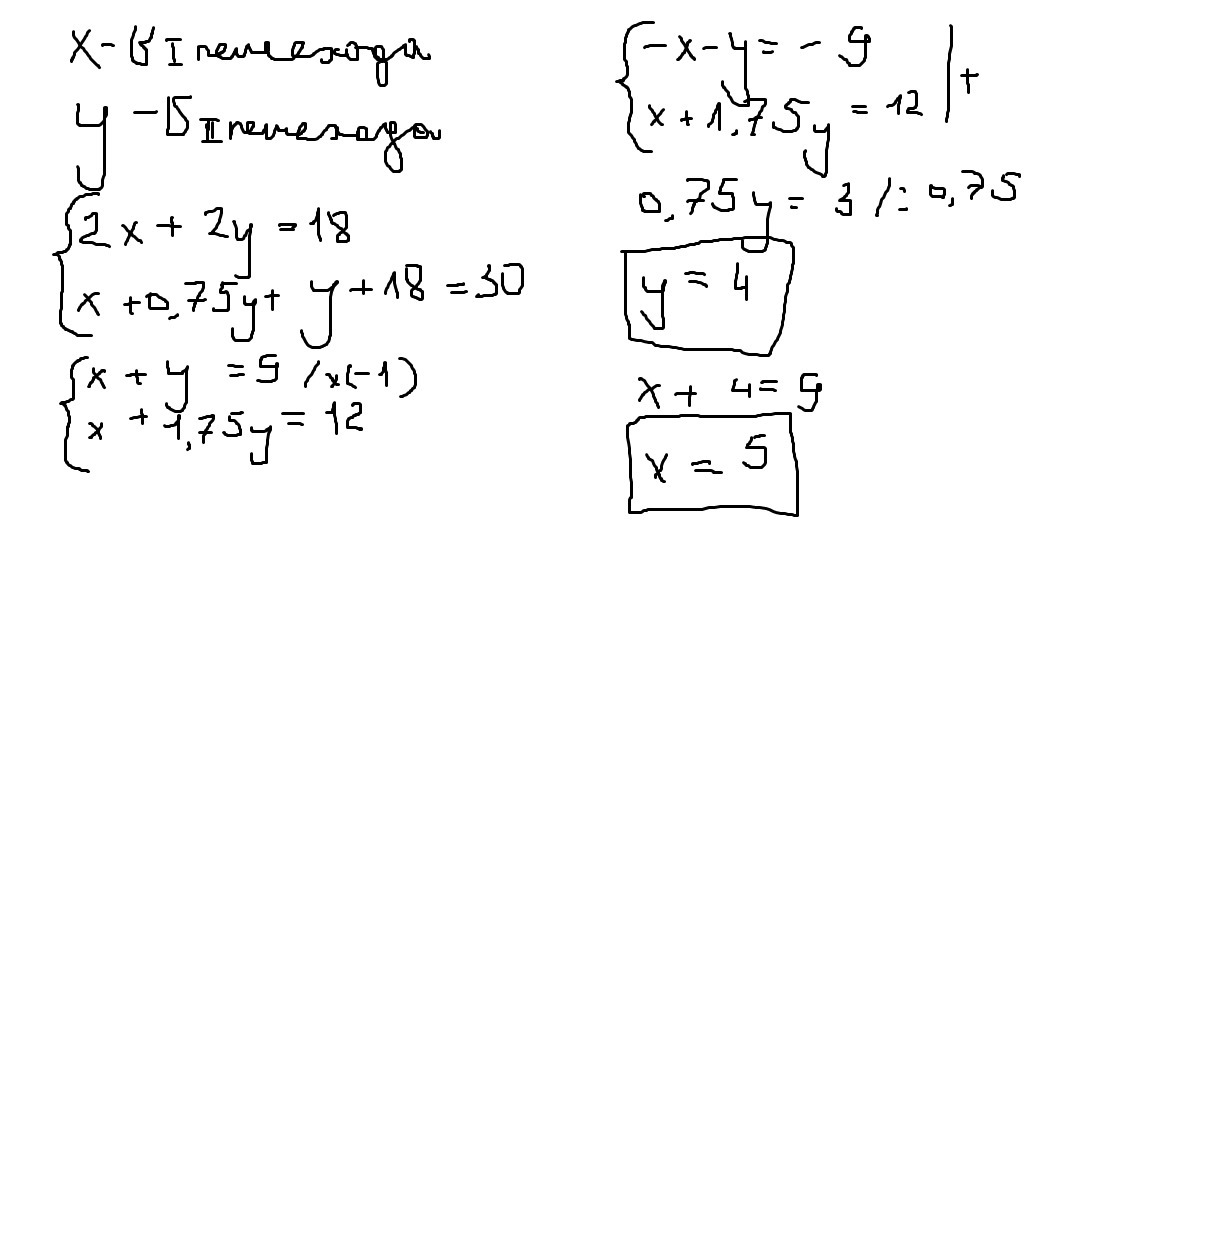 x - V I пешехода
y - V II пешехода
2x + 2y = 18
x + 0,75y + y + 18 = 30
x + y = 9 /x(-1)
x + 1,75y = 12
-x - y = - 9
x + 1,75y = 12 | +
0,75y = 3 /: 0,75
y = 4
x + 4 = 9
x = 5